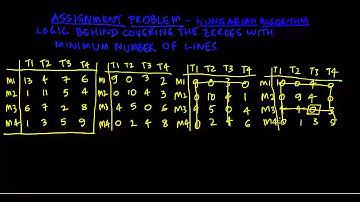 ASSIGNMENT PROBLEM - HUNGARIAN ALGORITHM
LOGIC BEHIND COVERING THE ZEROES WITH
MINIMUM NUMBER OF LINES
T1 T2 T3 T4 T1 T2 T3 T4 T1 T2 T3 T4 T1 T2 T3 T4
M1 13 4 7 6 M1 9 0 3 2 M1 9 0 3 0 M1 10 0 4 0
M2 1 11 5 4 M2 0 10 4 3 M2 0 10 4 1 M2 0 9 4 0
M3 6 7 2 8 M3 4 5 0 6 M3 4 5 0 4 M3 0
M4 1 3 5 9 M4 0 2 4 8 M4 0 2 4 6 M4 0 1 3 5